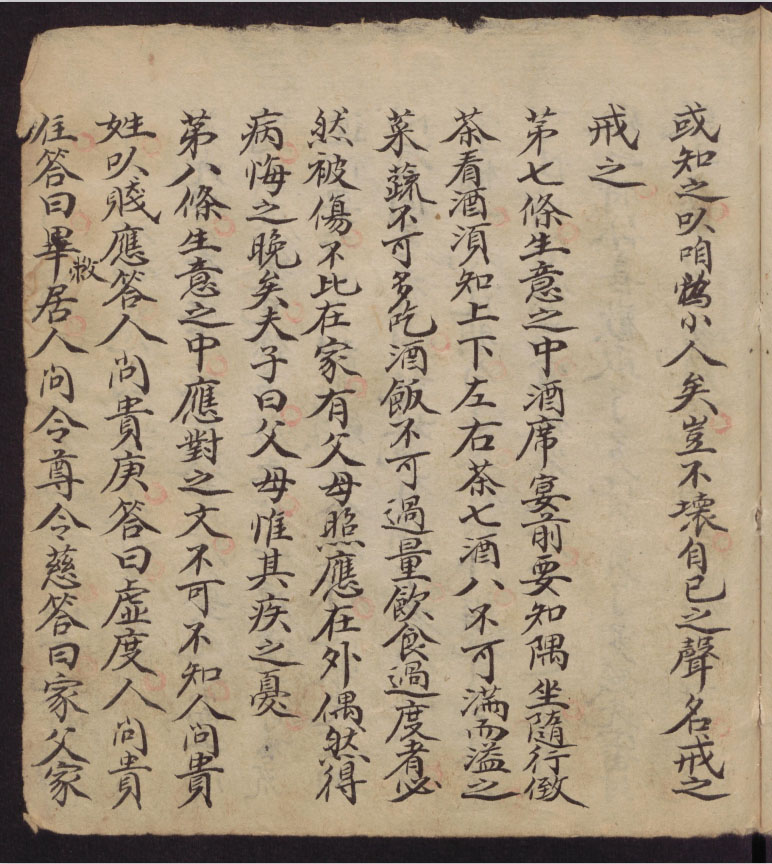 或知之以咱為小人矣豈不壞自已之聲名戒之
戒之
第七條生意之中酒席宴前要知隅坐隨行傚
茶看酒須知上下左右茶七酒八不可滿而溢之
菜蔬不可多吃酒飯不可過量飲食過度者必
然被傷不比在家有父母照應在外偶然得
病悔之晚矣夫子曰父母惟其疾之憂
第八條生意之中應對之文不可不知人问貴
姓以賤應答人问貴庚答曰虛度人问貴
住答曰畢敝居人问令尊令慈答曰家父家